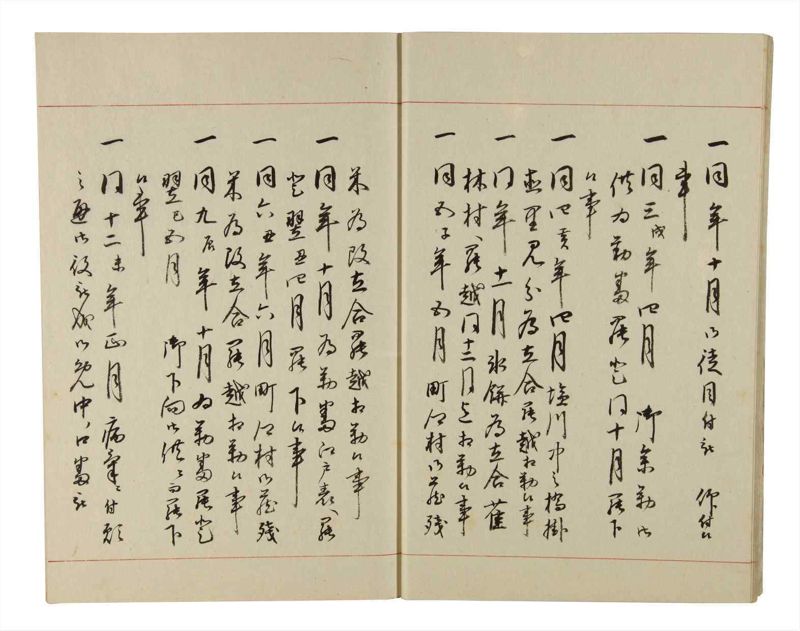 一同年十月御徒目付被 仰付候
事
一同三戌年四月 御参勤御
供為勤番罷登同十月罷下
候事
一同四亥年四月塩川中之橋掛
直見分為立合罷越相勤候事
一同年十一月氷餅為立合雀
林村へ罷越同十二月迄相勤候事
一同五子年五月町村御蔵残
米為改立合罷越相勤候事
一同年十月為勤番江戸表へ罷
登翌丑四月罷下候事
一同六丑年六月町村御蔵残
米為改立合罷越相勤候事
一同九辰年十月為勤番罷登
翌巳五月 御下向御供ニ而罷下
候事
一同十二未年正月病気ニ付願
之通御役被御免中ノ口番被